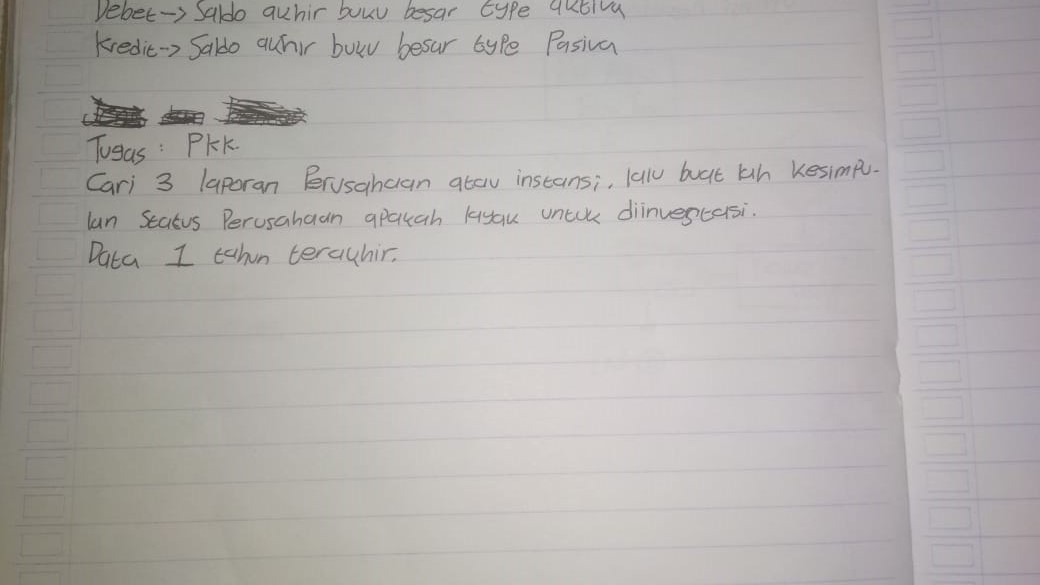 Debet -> Saldo akhir buku besar type aktiva
Kredit -> Saldo akhir buku besar type Pasiva
Tugas : Pkk.
Cari 3 laporan Perusahaan atau instansi, lalu buat lah kesimpu-
lan Status Perusahaan apakah layak untuk diinvestasi.
Data 1 tahun terakhir.